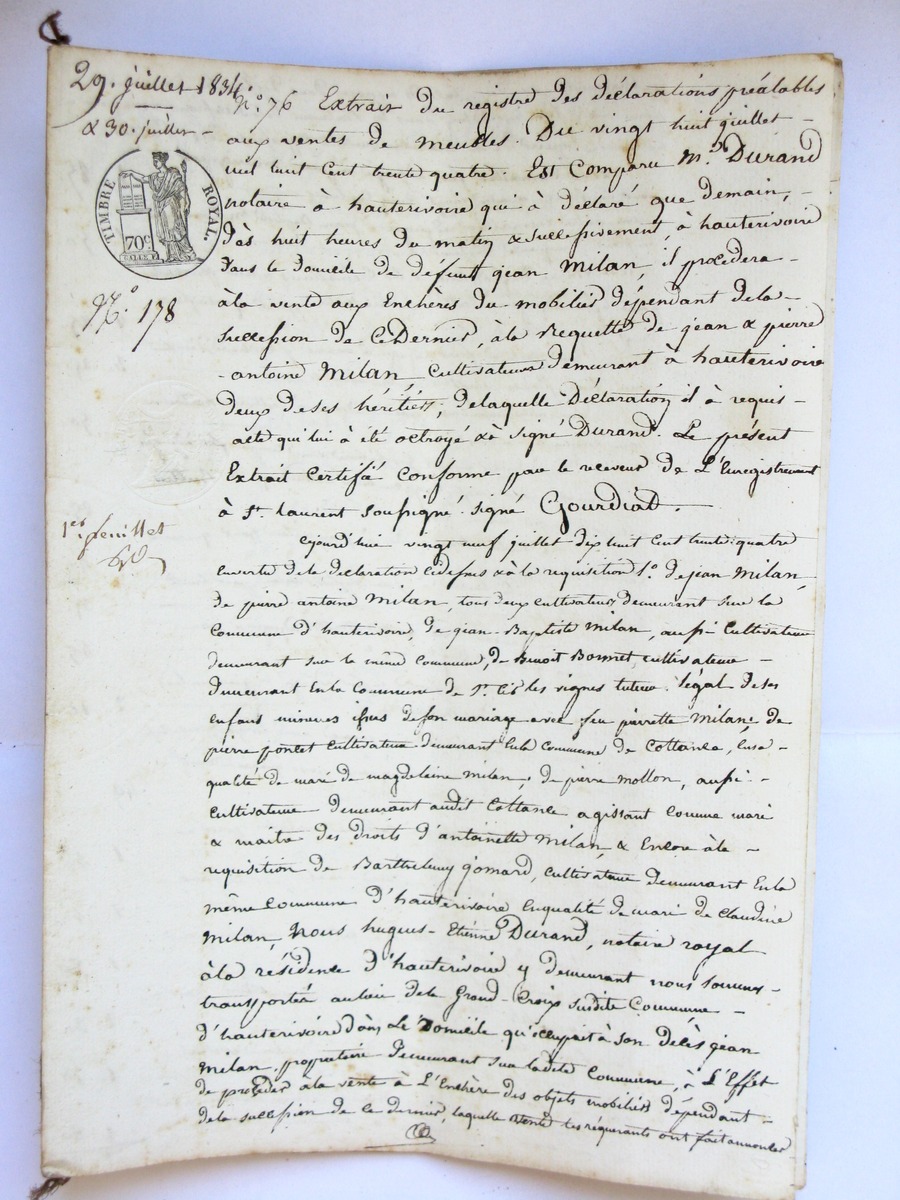 29. juillet 1834
& 30. juillet
TIMBRE ROYAL.
70c
N.o 178
1er feuillet
N.o 76 Extrait du registre des déclarations préalables
aux ventes de meubles. Du vingt huit juillet
mil huit cent trente quatre. Est comparu M.e Durand
notaire à hauterivoire qui à déclaré que demain,
dès huit heures du matin & successivement, à hauterivoire
dans le domicile de défunt jean Milan, il procedera
à la vente aux Enchères du mobilier dépendant de la
succession de ce Dernier, à la Requette de jean & pierre
antoine Milan, Cultivateurs demeurant à hauterivoire
deux de ses héritiers, de laquelle Déclaration il à requis
acte qui lui à été octroyé & à signé Durand. Le présent
Extrait Certifié Conforme par le receveur de L'Enregistrement
à St. Laurent soussigné. signé Gourdiat.
Cejourd'hui vingt neuf juillet dix huit cent trente quatre
en vertu de la déclaration cidessus & à la requisition 1.o de jean Milan,
de pierre antoine Milan, tous deux cultivateurs demeurant sur la
Commune d'hauterivoire, de jean-Baptiste Milan, aussi Cultivateur
demeurant sur la même commune, de Benoit Bonnet, cultivateur
demeurant En la Commune de St. les vignes tuteur légal de ses
enfans mineurs issus de son mariage avec feu pierrette Milan, de
pierre poncet cultivateur demeurant En la commune de Cottance, En sa
qualité de mari de magdelaine Milan, de pierre mollon, aussi
Cultivateur demeurant audit Cottance agissant comme mari
& maitre des droits d'antoinette Milan, & Encore à la
requisition de Barthelemy jomard, cultivateur demeurant En la
même Commune d'hauterivoire En qualité de mari de Claudine
Milan, Nous hugues-Etienne Durand, notaire royal
à la résidence d'hauterivoire y demeurant nous sommes
transporté au lieu de la Grand Croix susdite Commune
d'hauterivoire dans Le Domicile qu'occupait à son décès jean
Milan, propriétaire demeurant sur ladite Commune, à L'Effet
de procéder à la vente à L'Enchère des objets mobiliers dépendant
de la succession de ce dernier, laquelle vente les requérants ont fait annoncer